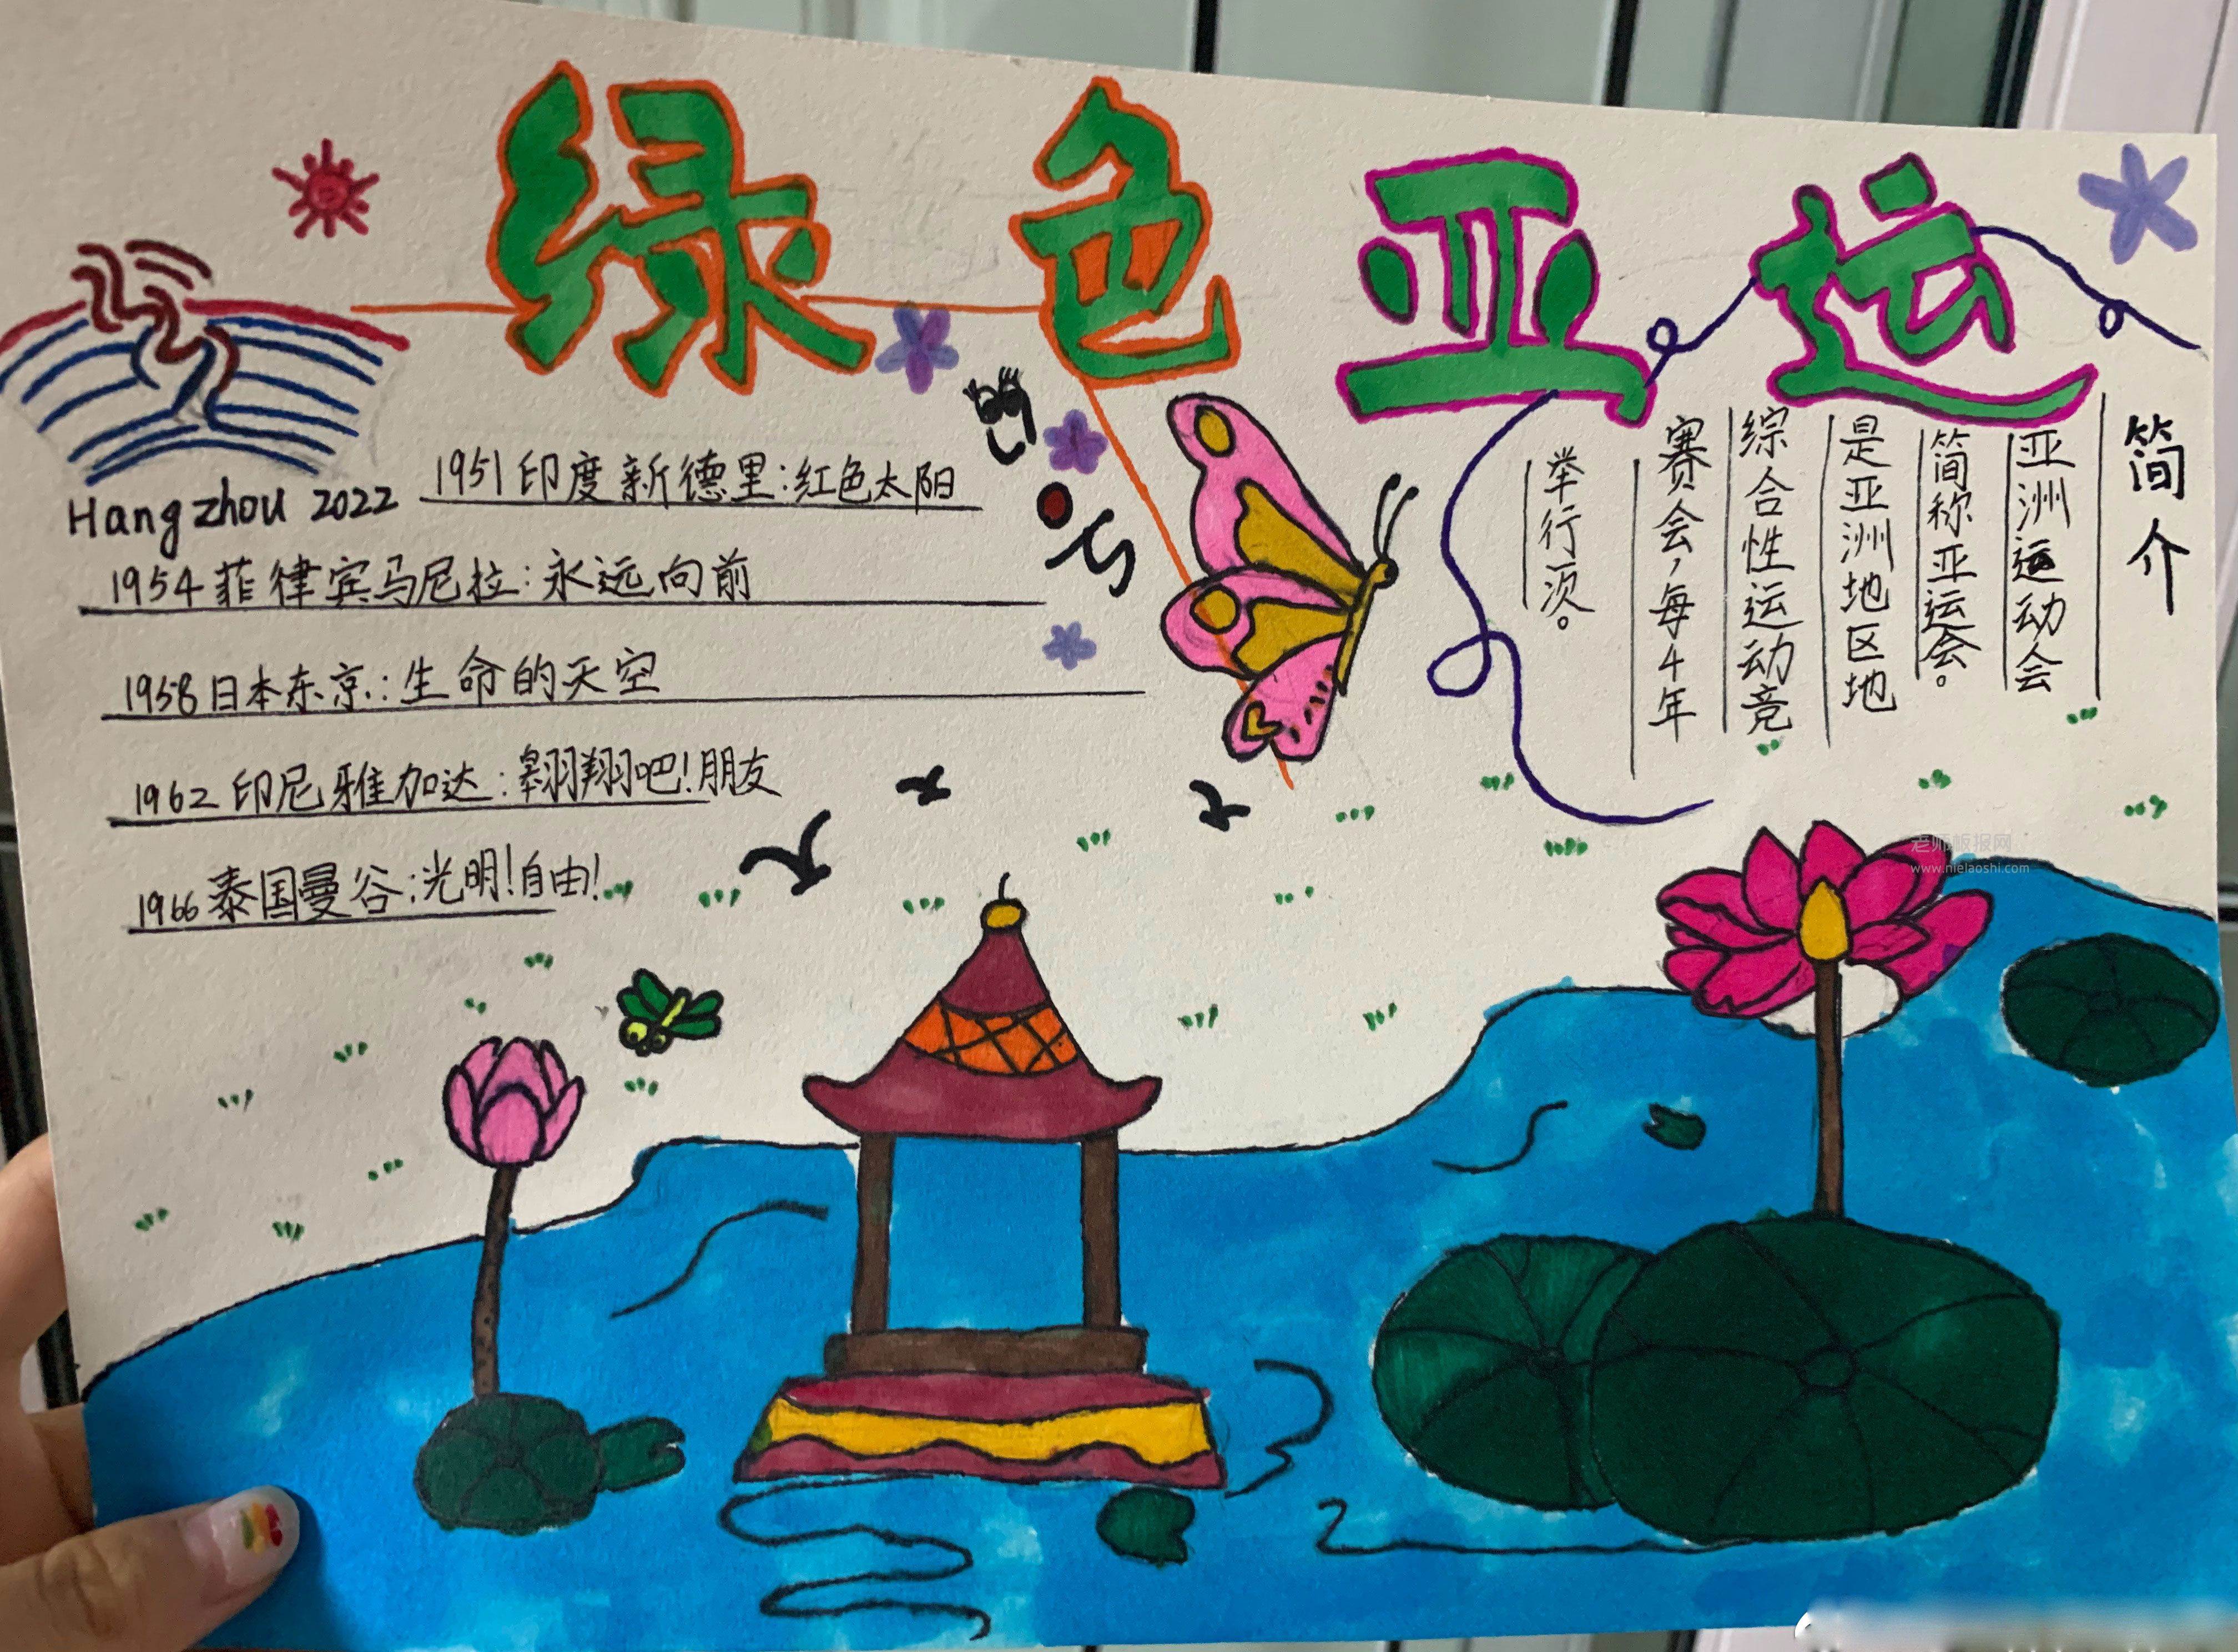 绿色亚运
Hangzhou 2022
1951印度新德里:红色太阳
1954菲律宾马尼拉:永远向前
1958日本东京:生命的天空
1962印尼雅加达:翱翔吧!朋友
1966泰国曼谷:光明!自由!
简介
亚洲运动会
简称亚运会。
是亚洲地区地
综合性运动竞
赛会,每4年
举行一次。
老师板报网
www.nielaoshi.com